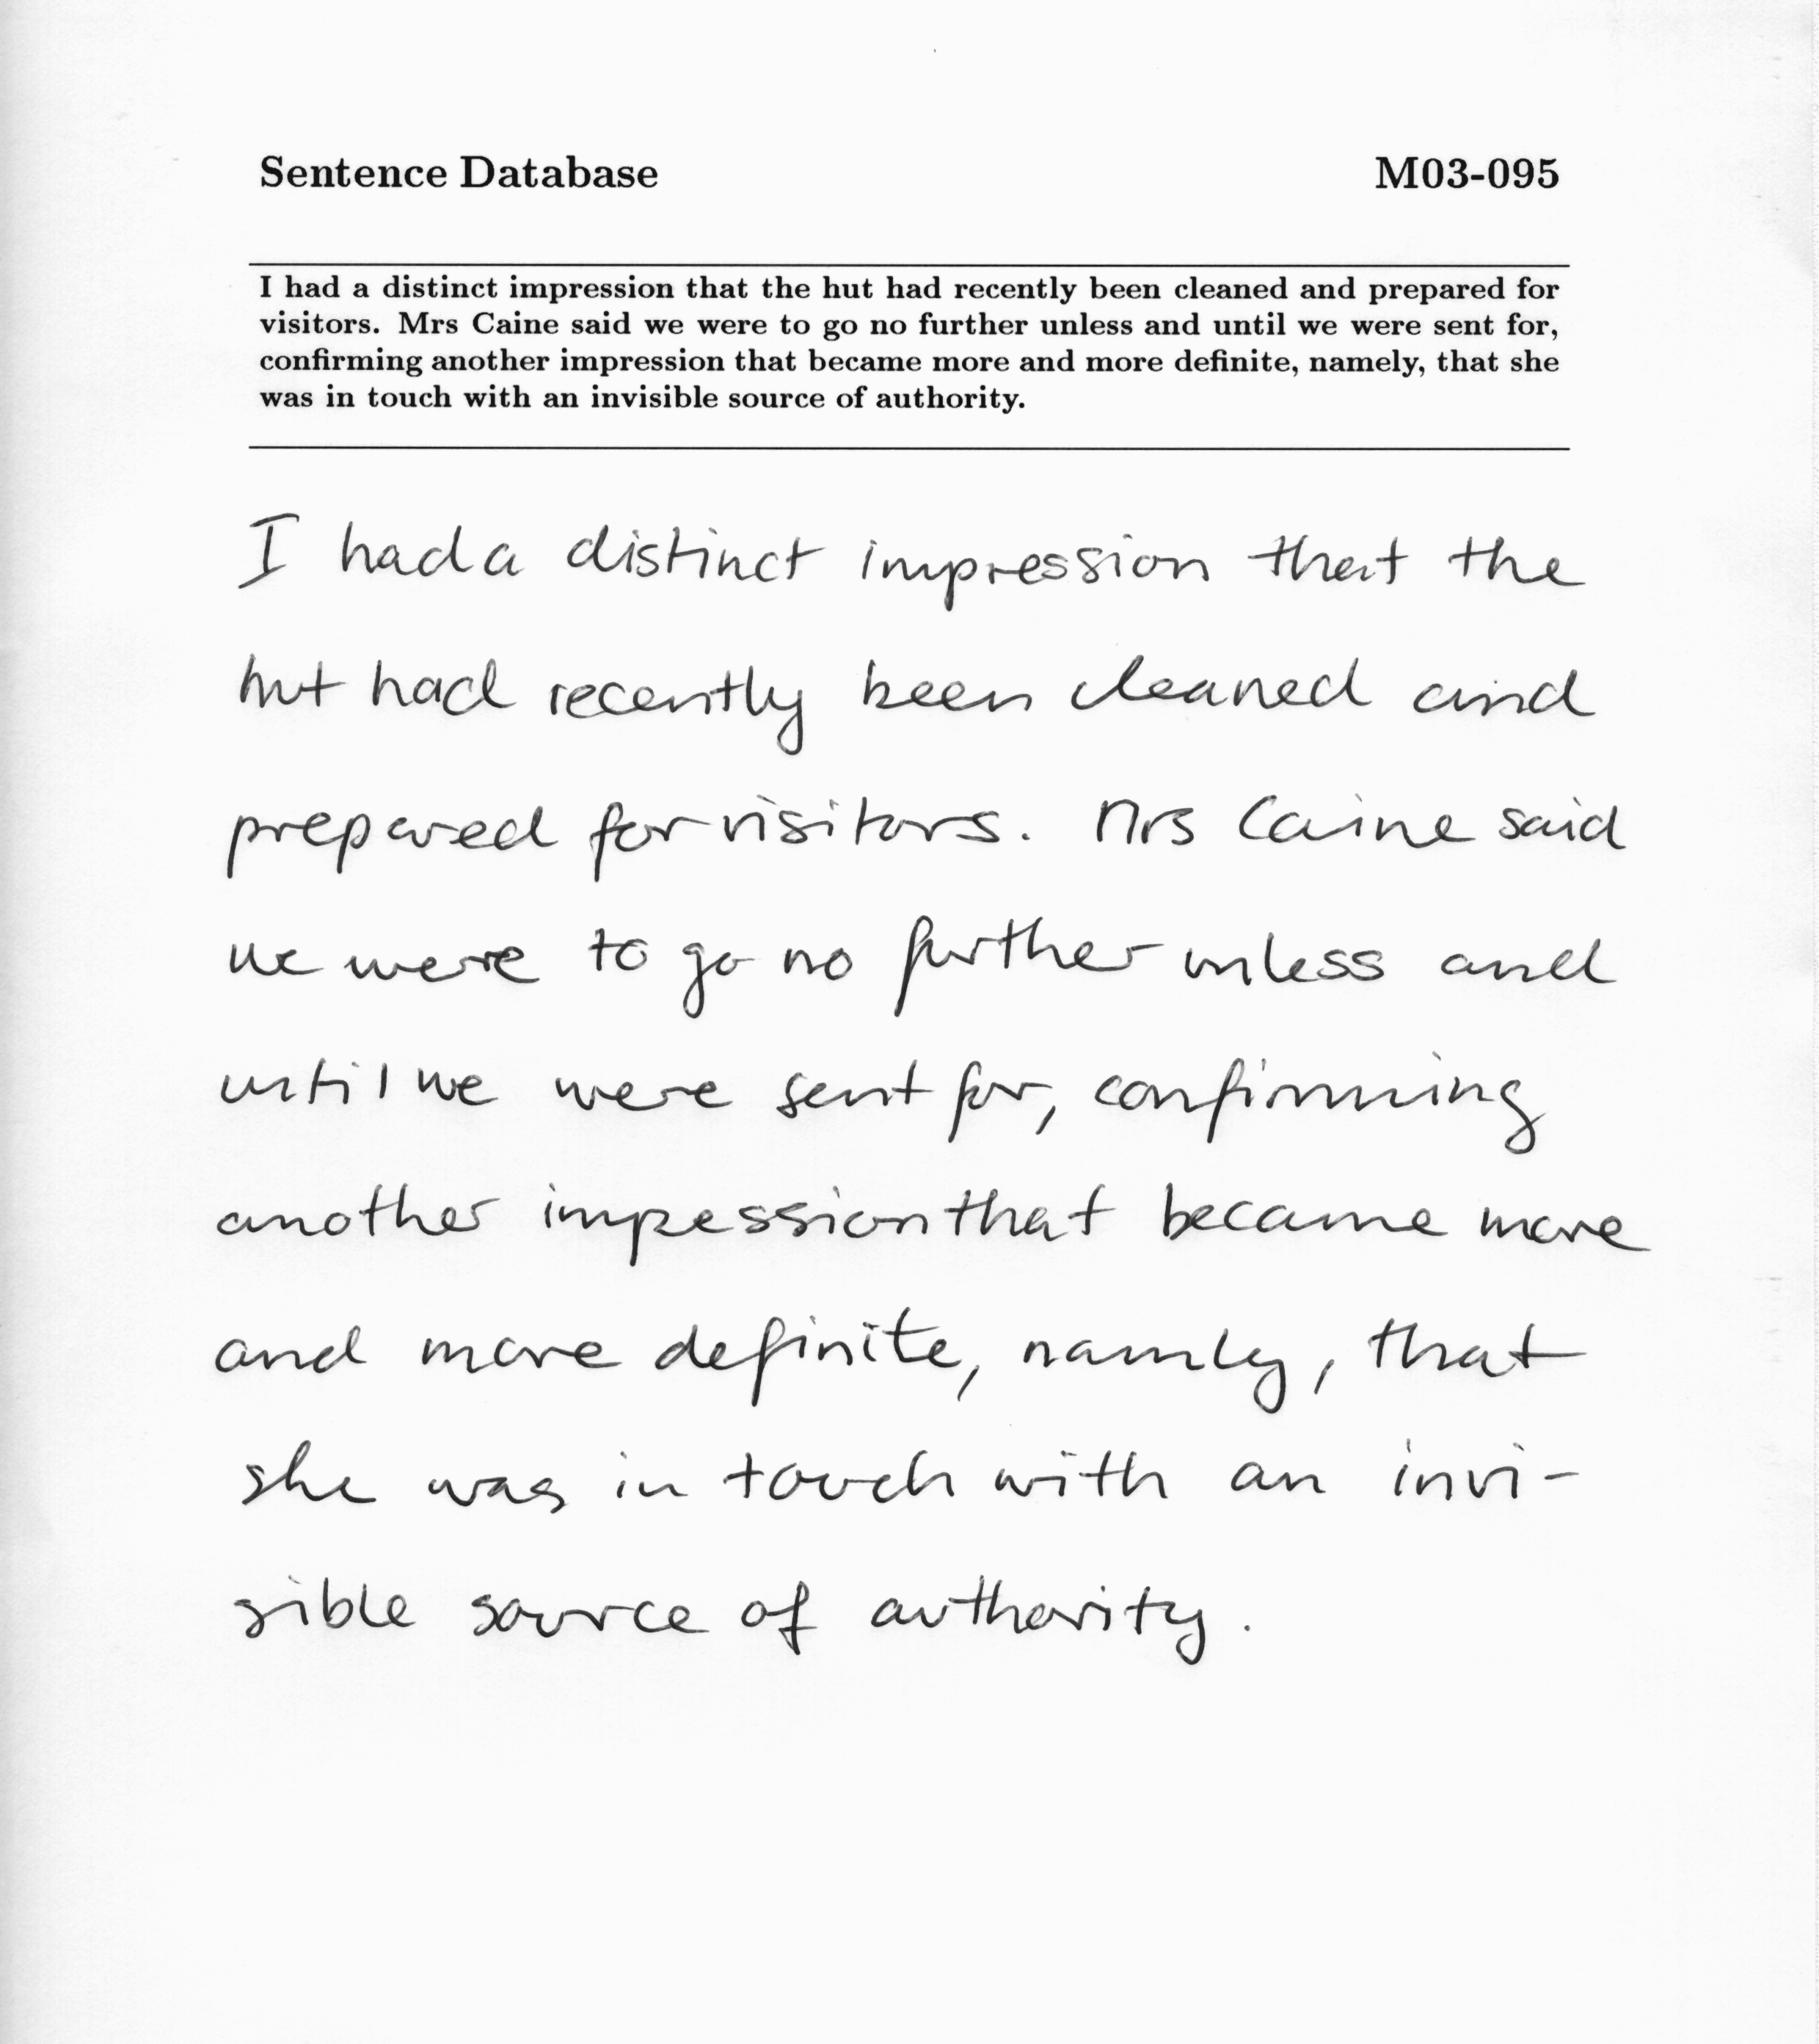 Sentence Database M03-095
I had a distinct impression that the hut had recently been cleaned and prepared for
visitors. Mrs Caine said we were to go no further unless and until we were sent for,
confirming another impression that became more and more definite, namely, that she
was in touch with an invisible source of authority.
I had a distinct impression that the
hut had recently been cleaned and
prepared for visitors. Mrs Caine said
we were to go no further unless and
until we were sent for, confirming
another impression that became more
and more definite, namly, that
she was in touch with an invi-
sible source of authority.